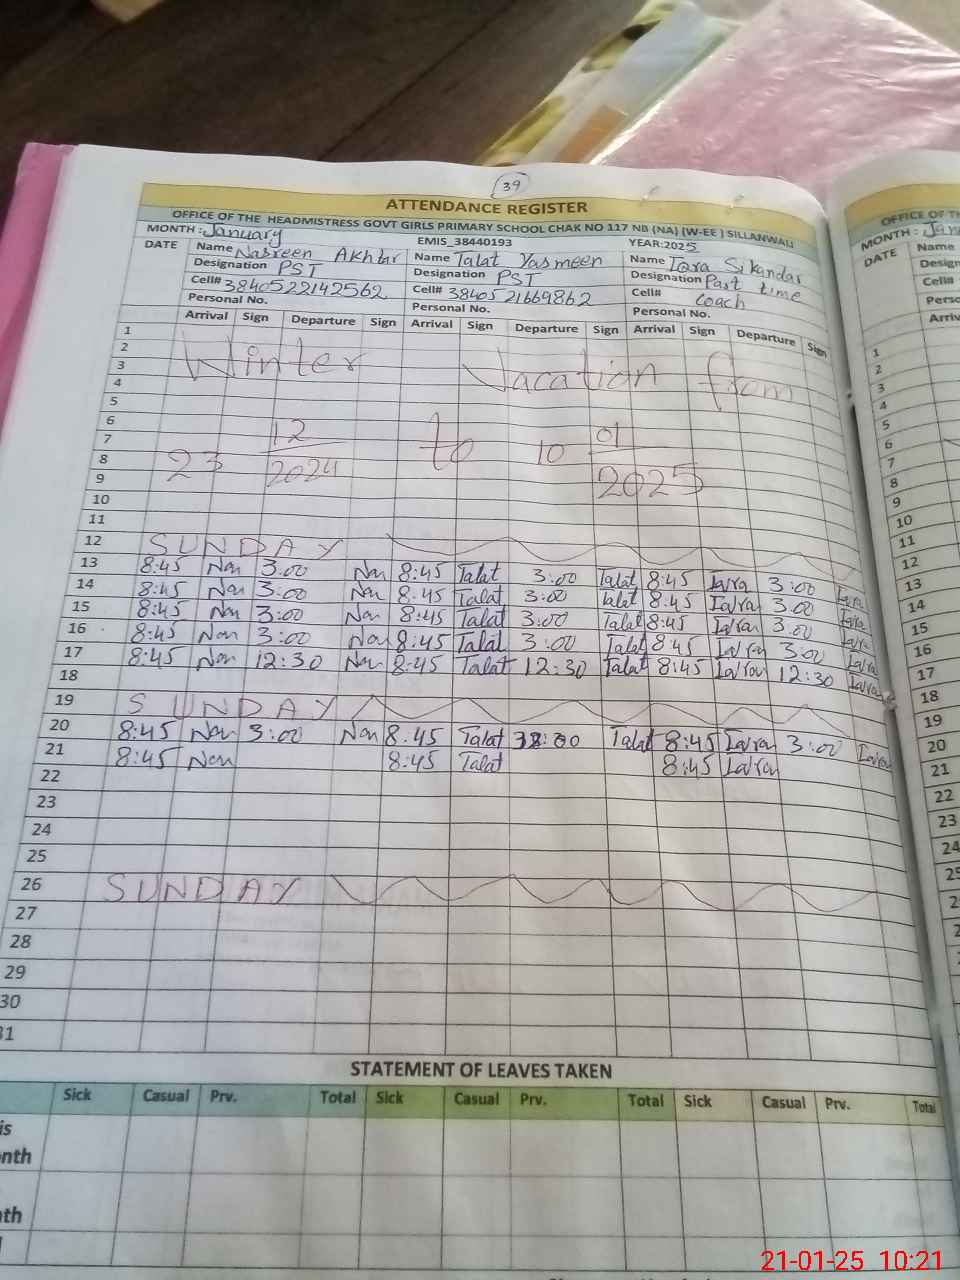 39
ATTENDANCE REGISTER
OFFICE OF THE HEADMISTRESS GOVT GIRLS PRIMARY SCHOOL CHAK NO 117 NB (NA) (W-EE) SILLANWALI
MONTH: January EMIS_38440193 YEAR:2025
DATE Name Nasreen Akhtar Name Talat Yasmeen Name Iqra Sikandar
Designation PST Designation PST Designation Part time
Cell# 3840522142562 Cell# 3840521669862 Cell# coach
Personal No. Personal No. Personal No.
Arrival Sign Departure Sign Arrival Sign Departure Sign Arrival Sign Departure Sign
1
2
3 Winter Vacation from
4
5
6
7 12 01
8 23 2024 to 10 2025
9
10
11
12 SUNDAY
13 8:45 Nan 3:00 Nan 8:45 Talat 3:00 Talat 8:45 Iqra 3:00 Iqra
14 8:45 Nan 3:00 Nan 8:45 Talat 3:00 Talat 8:45 Iqra 3:00 Iqra
15 8:45 Nan 3:00 Nan 8:45 Talat 3:00 Talat 8:45 Iqra 3:00 Iqra
16 8:45 Nan 3:00 Nan 8:45 Talat 3:00 Talat 8:45 Iqra 3:00 Iqra
17 8:45 Nan 12:30 Nan 8:45 Talat 12:30 Talat 8:45 Iqra 12:30 Iqra
18
19 SUNDAY
20 8:45 Nan 3:00 Nan 8:45 Talat Talat 8:45 Iqra 3:00 Iqra
21 8:45 Nan 8:45 Talat 8:45 Iqra
22
23
24
25
26 SUNDAY
27
28
29
30
31
STATEMENT OF LEAVES TAKEN
Sick Casual Prv. Total Sick Casual Prv. Total Sick Casual Prv. Total
is
nth
th
OFFICE OF TH
MONTH: Jan
DATE Name
Design
Cell#
Perso
Arriv
1
2
3
4
5
6
7
8
9
10
11
12
13
14
15
16
17
18
19
20
21
22
23
24
25
21-01-25 10:21